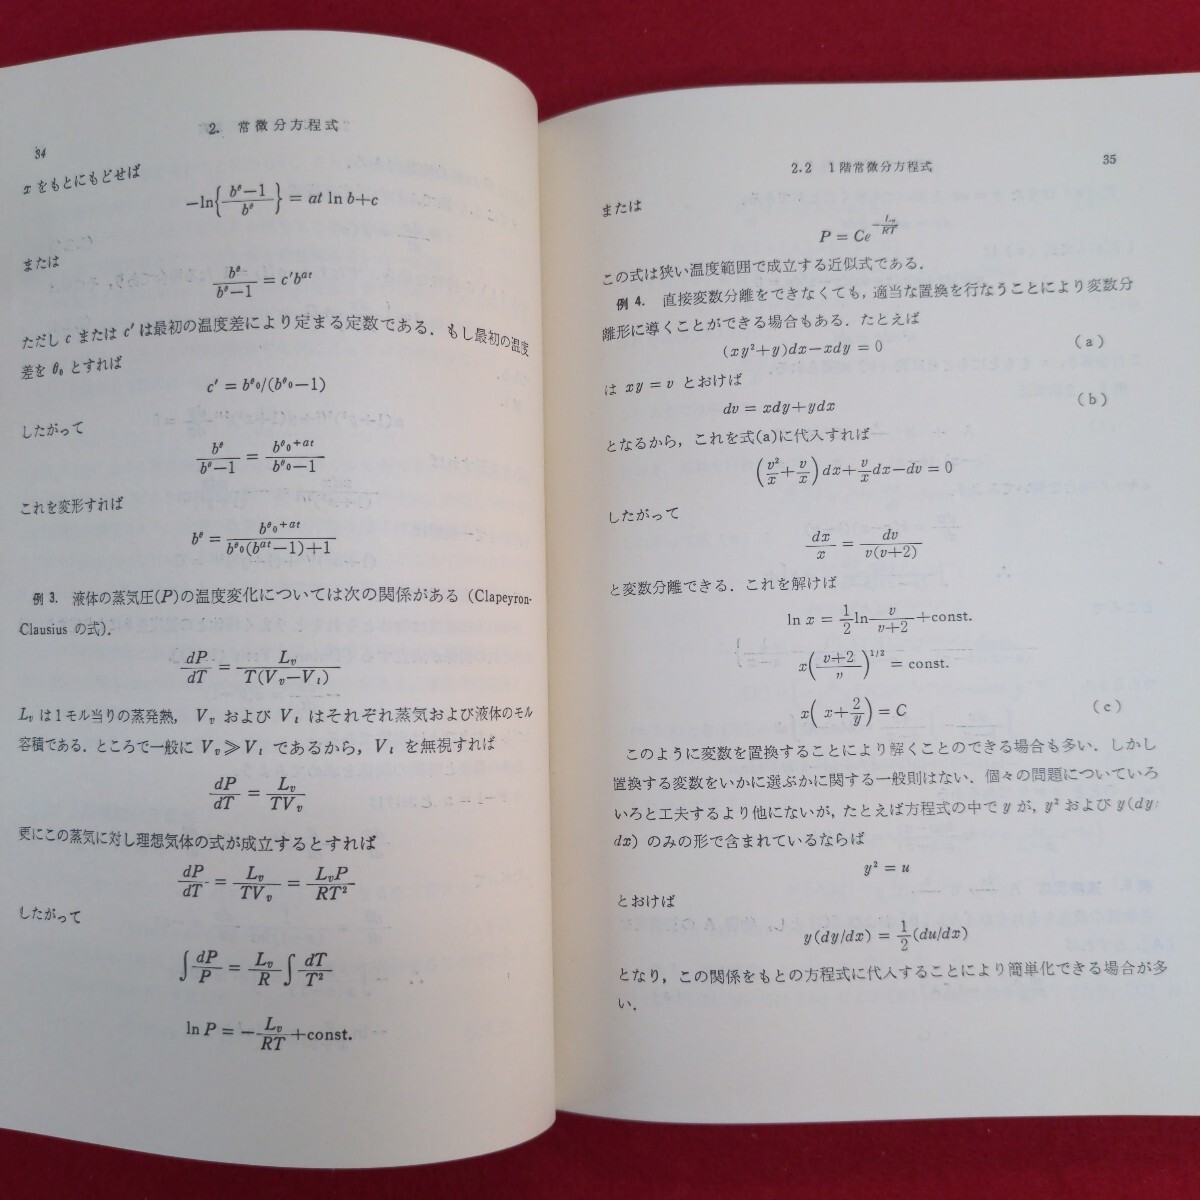 2. 常微分方程式
34
x をもとにもどせば
−ln{(b^θ−1)/b^θ} = at ln b+c
または
b^θ/(b^θ−1) = c′b^{at}
ただし c または c′ は最初の温度差により定まる定数である．もし最初の温度
差を θ₀ とすれば
c′ = b^{θ₀}/(b^{θ₀}−1)
したがって
b^θ/(b^θ−1) = b^{θ₀+at}/(b^{θ₀}−1)
これを変形すれば
b^θ = b^{θ₀+at}/(b^{θ₀}(b^{at}−1)+1)
例 3. 液体の蒸気圧(P)の温度変化については次の関係がある (Clapeyron-
Clausius の式)．
dP/dT = L_v/(T(V_v−V_l))
L_v は1モル当りの蒸発熱， V_v および V_l はそれぞれ蒸気および液体のモル
容積である．ところで一般に V_v≫V_l であるから，V_l を無視すれば
dP/dT = L_v/(TV_v)
更にこの蒸気に対し理想気体の式が成立するとすれば
dP/dT = L_v/(TV_v) = L_vP/(RT²)
したがって
∫dP/P = (L_v/R)∫dT/T²
ln P = −L_v/(RT)+const.
2.2 1階常微分方程式
35
または
P = Ce^{−L_v/(RT)}
この式は狭い温度範囲で成立する近似式である．
例 4. 直接変数分離をできなくても，適当な置換を行なうことにより変数分
離形に導くことができる場合もある．たとえば
(xy²+y)dx−xdy = 0 (a)
は xy = v とおけば
dv = xdy+ydx (b)
となるから，これを式(a)に代入すれば
(v²/x+v/x)dx+(v/x)dx−dv = 0
したがって
dx/x = dv/(v(v+2))
と変数分離できる．これを解けば
ln x = (1/2)ln v/(v+2)+const.
x((v+2)/v)^{1/2} = const.
x(x+2/y) = C (c)
このように変数を置換することにより解くことのできる場合も多い．しかし
置換する変数をいかに選ぶかに関する一般則はない．個々の問題についていろ
いろと工夫するより他にないが，たとえば方程式の中で y が，y² および y(dy/
dx) のみの形で含まれているならば
y² = u
とおけば
y(dy/dx) = (1/2)(du/dx)
となり，この関係をもとの方程式に代入することにより簡単化できる場合が多
い．